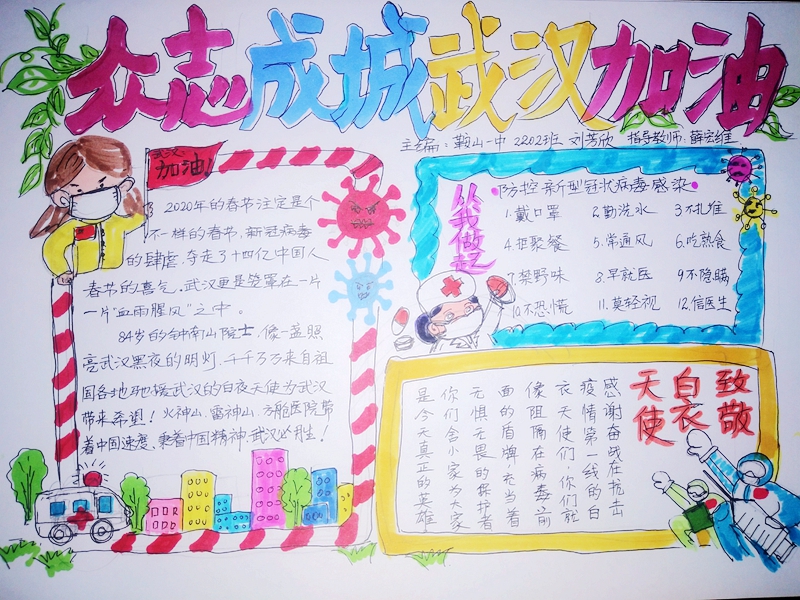 众志成城武汉加油
主编：鞍山一中 2202班 刘芳欣 指导教师：薛宏维
武汉
加油!
2020年的春节注定是个
不一样的春节,新冠病毒
的肆虐,夺走了十四亿中国人
春节的喜气。武汉更是笼罩在一片
一片“血雨腥风”之中。
84岁的钟南山院士,像一盏照
亮武汉黑夜的明灯,千千万万来自祖
国各地驰援武汉的白衣天使为武汉
带来希望！火神山、雷神山、方舱医院带
着中国速度,乘着中国精神,武汉必胜！
从我做起
防控新型冠状病毒感染
1.戴口罩 2.勤洗水 3不扎堆
4.拒聚餐 5.常通风 6.吃熟食
7.禁野味 8.早就医 9不隐瞒
10.不恐慌 11.莫轻视 12.信医生
致敬
白衣
天使
感谢奋战在抗击
疫情第一线的白
衣天使们,你们就
像阻隔在病毒前
面的盾牌,充当着
无惧无畏的保护者
你们舍小家为大家
是今天真正的英雄